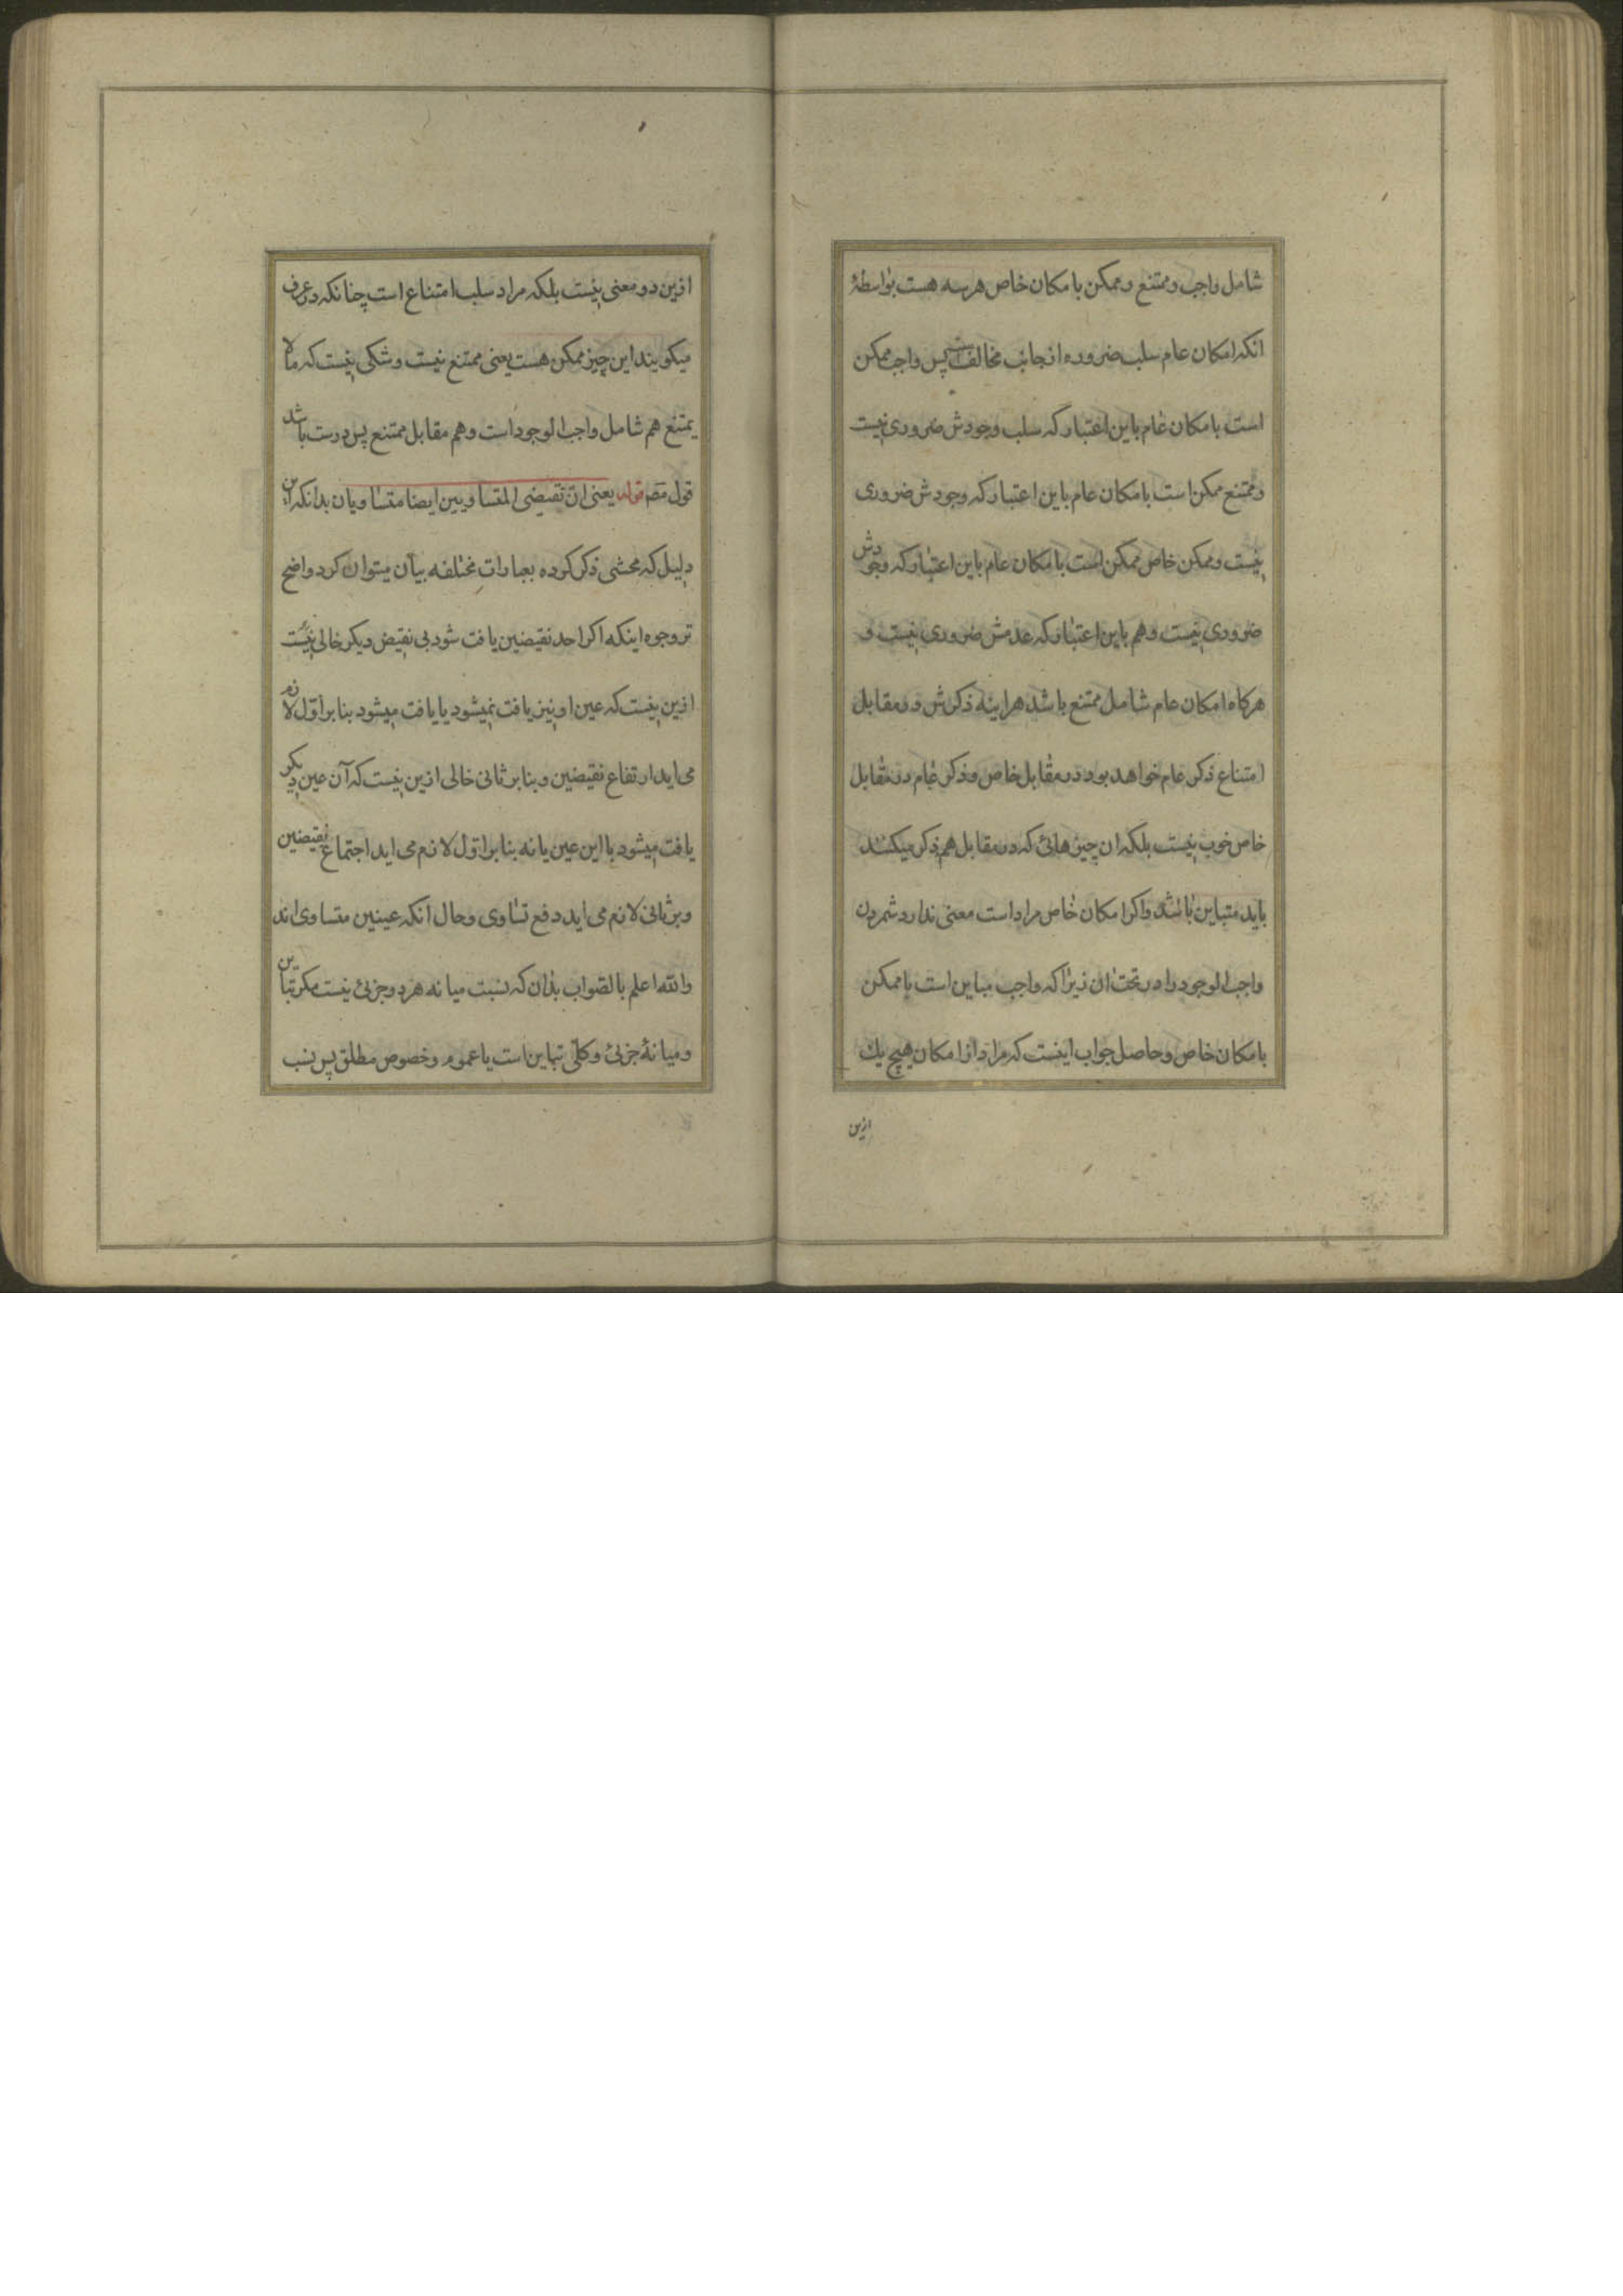 شامل واجب و ممتنع و ممکن بامکان خاص هر سه هست بواسطهٔ
انکه امکان عام سلب ضروره از جانب مخالف است پس واجب ممکن
است بامکان عام باین اعتبار که سلب وجودش ضروری نیست
و ممتنع ممکن است بامکان عام باین اعتبار که وجودش ضروری
نیست و ممکن خاص ممکن است بامکان عام باین اعتبار که وجودش
ضروری نیست و هم باین اعتبار که عدمش ضروری نیست و
هرکاه امکان عام شامل ممتنع باشد هراینه ذکرش در مقابل
امتناع ذکر عام خواهد بود در مقابل خاص و ذکر عام در مقابل
خاص خوب نیست بلکه ان چیزهائی که در مقابل هم ذکر میکنند
باید متباین باشد و اکر امکان خاص مراد است معنی ندارد شمردن
واجب الوجود را در تحت ان زیرا که واجب مباین است با ممکن
بامکان خاص و حاصل جواب اینست که مراد از امکان هیچ یك
ازین
ازین دو معنی نیست بلکه مراد سلب امتناع است چنانکه در عرف
میکویند این چیز ممکن هست یعنی ممتنع نیست و شکی نیست که ما لا
یمتنع هم شامل واجب الوجود است و هم مقابل ممتنع پس درست باشد
قول مصـ قوله یعنی ان نقیضی المتساویین ایضا متساویان بدانکه این
دلیل که محشی ذکر کرده بعبارات مختلفه بیان میتوان کرد واضح
تر وجوه اینکه اکر احد نقیضین یافت شود بی نقیض دیکر خالی نیست
ازین نیست که عین او نیز یافت نمیشود یا یافت میشود بنا بر اوّل لازم
می اید ارتفاع نقیضین و بنا بر ثانی خالی ازین نیست که آن عین دیکر
یافت میشود با این عین یا نه بنا بر اوّل لازم می اید اجتماع نقیضین
و بر ثانی لازم می اید دفع تساوی و حال انکه عینین متساوی اند
والله اعلم بالصّواب بدان که نسبت میانه هر دو جزئی نیست مکر تباین
و میانهٔ جزئی و کلّی تباین است یا عموم و خصوص مطلق پس نسب